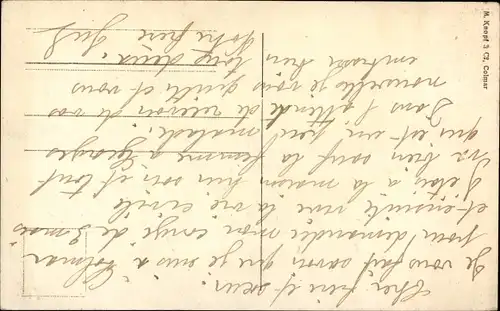 Cher frère et sœur
Je vous fait savoir que je suis à Colmar
pour demander mon congé de 3 mois
et ensuite vive la vie civile
J'étais à la maison hier soir et tout
va bien sauf la femme a Georges
qui est un peu malade.
Dans l'attente de recevoir de vos
nouvelles je vous quitte et vous
embrasse bien
tous deux.
Votre frère
M. Knopf 3 Cl, Colmar